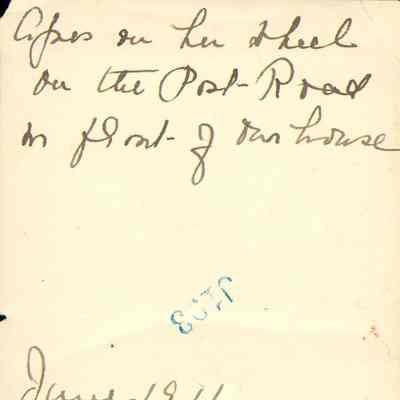 on her wheel
on the Post-Road
in front of our house
June 1911